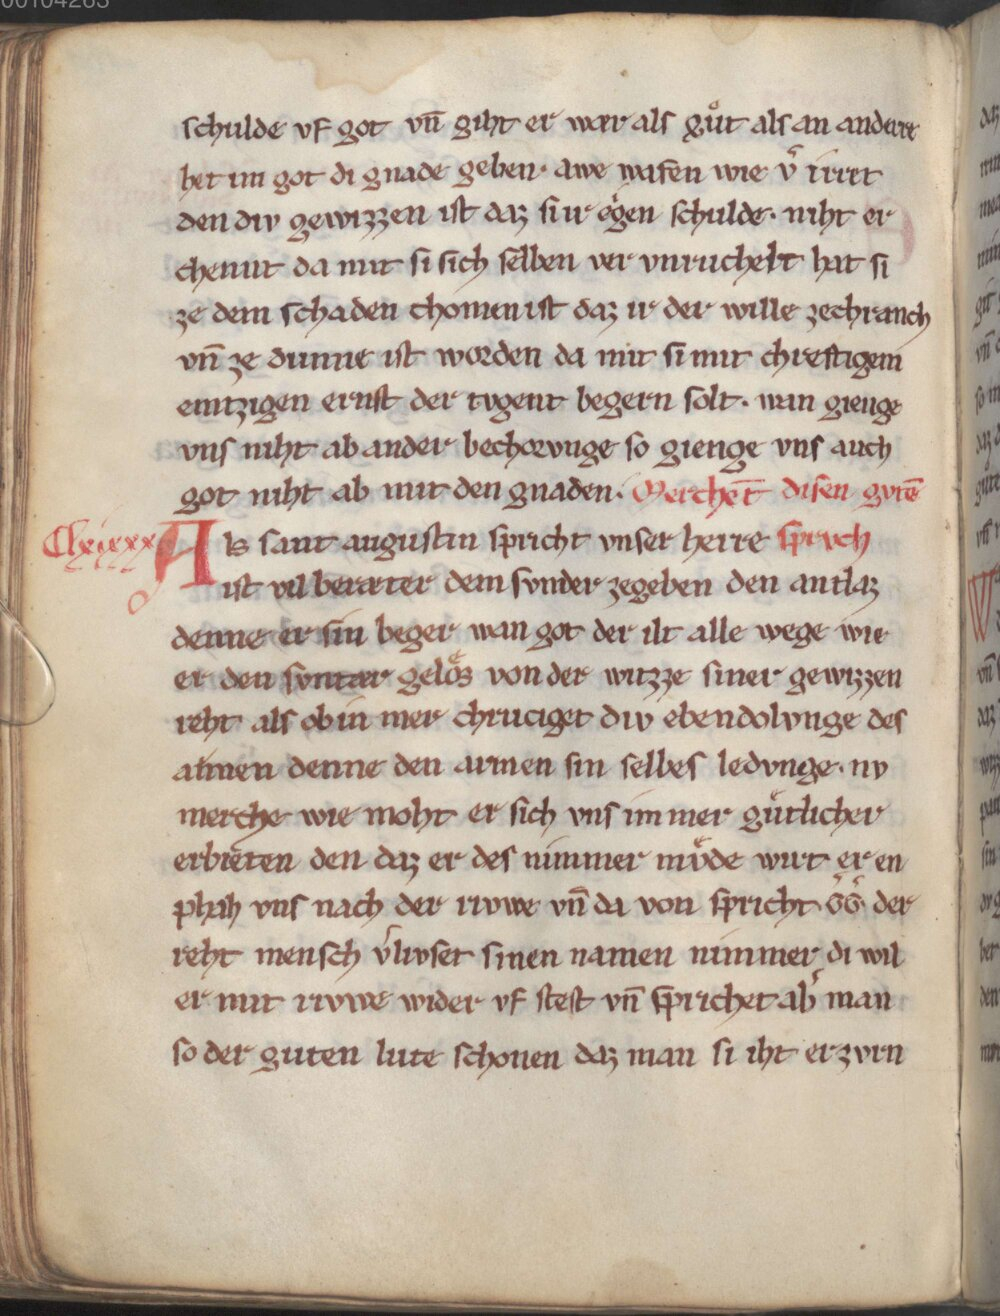 00104263
schulde vf got vn̄ giht er wær als gůt als an andere
het im got di gnade geben· awe wafen wie v͛ irret
den div gewizzen ist daz si ir eͤgen schulde· niht er
chennt da mit si sich selben ver vnruchelt hat si
ze dem schaden chomen ist daz ir der wille zechranch
vn̄ ze dunne ist worden da mit si mit chreftigem
emtzigen ernst der tvgent begern solt· wan gienge
vns niht ab ander bechorvnge so gienge vns auch
got niht ab mit den gnaden· Merchet disen gvtē
Als sant augustin spricht vnser herre sprvch
ist vil beræter dem svnder zegeben den antlaz
denne er sin beger wan got der ilt alle wege wie
er den svntær geloͤs von der witzze siner gewizzen
reht als ob in mer chruciget div ebendolvnge des
armen denne den armen sin selbes ledvnge· nv
merche wie moht er sich vns immer guͤtlicher
erbieten den daz er des nimmer mvͤde wirt er en
phæh vns nach der rivwe vn̄ da von spricht der
reht mensch v͛livset sinen namen nimmer di wil
er mit rivwe wider vf stest vn̄ sprichet ab͛ man
so der guten lute schonen daz man si iht erzvrn